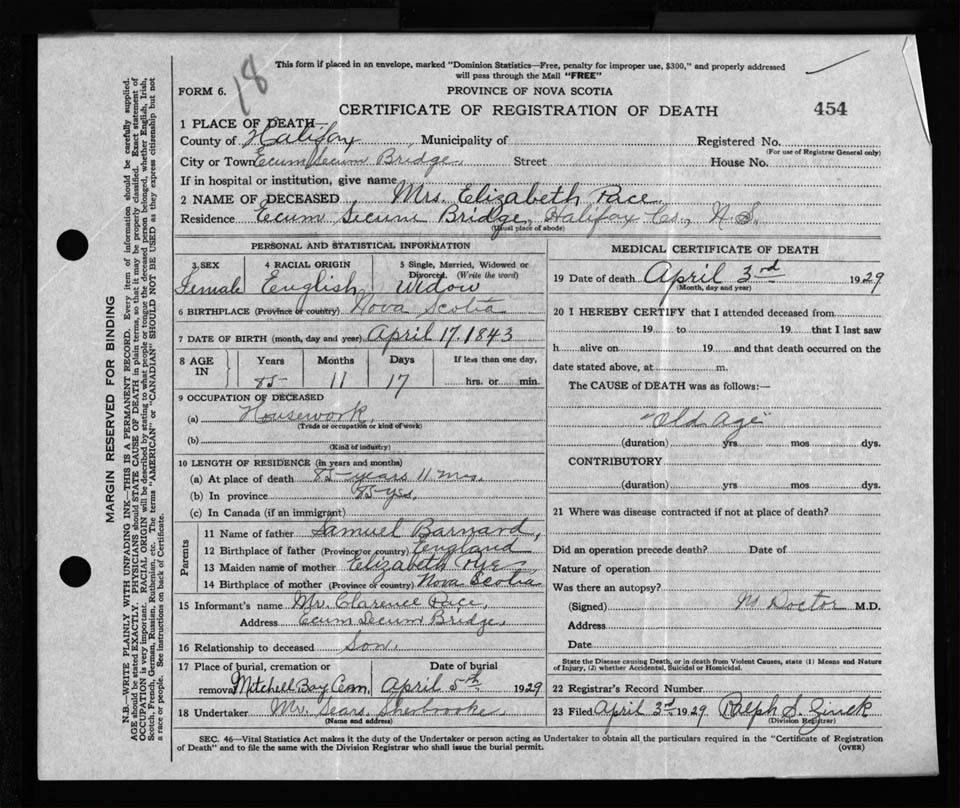 18
This form if placed in an envelope, marked "Dominion Statistics—Free, penalty for improper use, $300," and properly addressed
will pass through the Mail "FREE"
FORM 6. PROVINCE OF NOVA SCOTIA
CERTIFICATE OF REGISTRATION OF DEATH 454
1 PLACE OF DEATH—
County of Halifax, Municipality of Registered No.
(For use of Registrar General only)
City or Town Ecum Secum Bridge. Street House No.
If in hospital or institution, give name
2 NAME OF DECEASED Mrs. Elizabeth Pace
Residence Ecum Secum Bridge, Halifax Co., N.S.
(Usual place of abode)
PERSONAL AND STATISTICAL INFORMATION
3 SEX 4 RACIAL ORIGIN 5 Single, Married, Widowed or
Divorced. (Write the word)
Female English Widow
6 BIRTHPLACE (Province or country) Nova Scotia
7 DATE OF BIRTH (month, day and year) April 17. 1843
8 AGE IN Years Months Days If less than one day,
85 11 17 hrs. or min.
9 OCCUPATION OF DECEASED
(a) Housework,
(Trade or occupation or kind of work)
(b)
(Kind of industry)
10 LENGTH OF RESIDENCE (in years and months)
(a) At place of death 85 years 11 mos.
(b) In province 85 yrs.
(c) In Canada (if an immigrant)
Parents
11 Name of father Samuel Barnard,
12 Birthplace of father (Province or country) England
13 Maiden name of mother Elizabeth
14 Birthplace of mother (Province or country) Nova Scotia
15 Informant's name Mr. Clarence Pace,
Address Ecum Secum Bridge,
16 Relationship to deceased Son.
17 Place of burial, cremation or Date of burial
removal Mitchell Bay Cem, April 5th 1929
18 Undertaker Mr. Sears Sherbrooke
(Name and address)
MEDICAL CERTIFICATE OF DEATH
19 Date of death April 3rd 1929
(Month, day and year)
20 I HEREBY CERTIFY that I attended deceased from
19 to 19 that I last saw
h alive on 19 and that death occurred on the
date stated above, at m.
The CAUSE of DEATH was as follows:—
"Old Age"
(duration) yrs mos dys.
CONTRIBUTORY
(duration) yrs mos dys.
21 Where was disease contracted if not at place of death?
Did an operation precede death? Date of
Nature of operation
Was there an autopsy?
(Signed) Doctor M.D.
Address
Date
State the Disease causing Death, or in death from Violent Causes, state (1) Means and Nature
of Injury, (2) whether Accidental, Suicidal or Homicidal.
22 Registrar's Record Number
23 Filed April 3rd 1929 Ralph S. Zinck
(Division Registrar)
SEC. 46—Vital Statistics Act makes it the duty of the Undertaker or person acting as Undertaker to obtain all the particulars required in the "Certificate of Registration
of Death" and to file the same with the Division Registrar who shall issue the burial permit. (OVER)
MARGIN RESERVED FOR BINDING
N.B.—WRITE PLAINLY WITH UNFADING INK—THIS IS A PERMANENT RECORD. Every item of information should be carefully supplied.
AGE should be stated EXACTLY. PHYSICIANS should STATE CAUSE OF DEATH in plain terms, so that it may be properly classified. Exact statement of
OCCUPATION is very important. RACIAL ORIGIN will be described by stating to what people or tongue the deceased person belonged, whether English, Irish,
Scotch, French, German, Russian, Ruthenian, etc. The terms "AMERICAN" or "CANADIAN" SHOULD NOT BE USED as they express citizenship but not
a race or people. See instructions on back of Certificate.